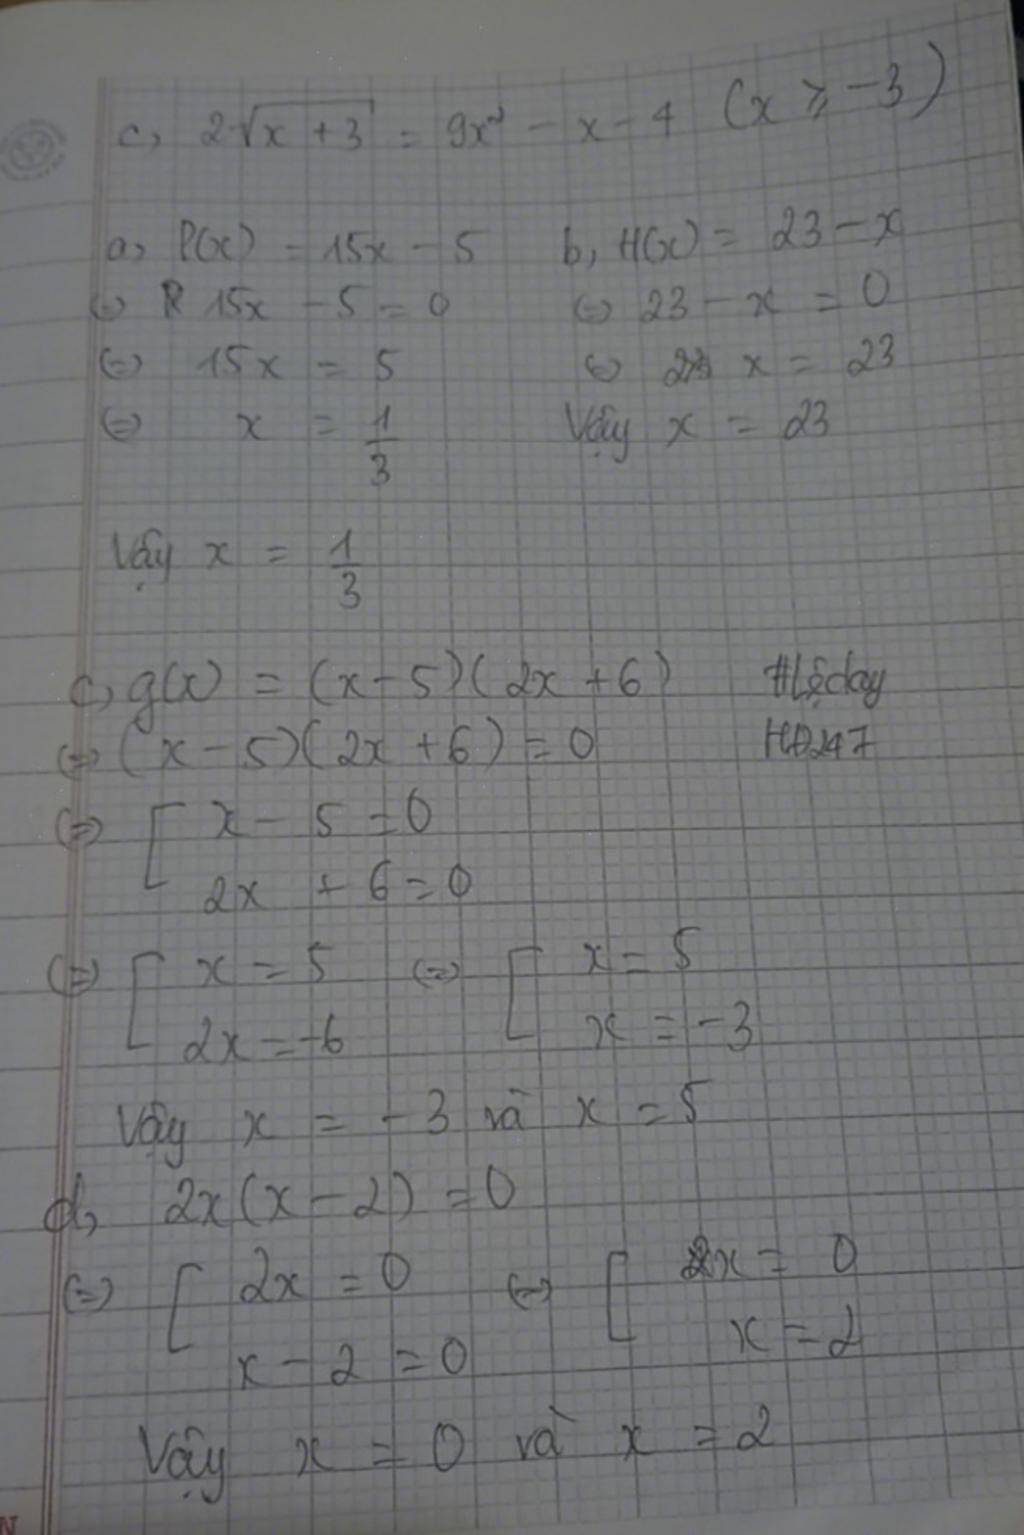 c, 2√(x + 3) = 9x² - x - 4 (x ≥ -3)
a, P(x) = 15x - 5
(=) 15x - 5 = 0
(=) 15x = 5
(=) x = 1/3
Vậy x = 1/3
b, H(x) = 23 - x
(=) 23 - x = 0
(=) x = 23
Vậy x = 23
c, g(x) = (x - 5)(2x + 6)
#Lộcday
HĐ247
(=) (x - 5)(2x + 6) = 0
(=) [ x - 5 = 0
2x + 6 = 0
(=) [ x = 5 (=) [ x = 5
2x = -6 x = -3
Vậy x = -3 và x = 5
d, 2x(x - 2) = 0
(=) [ 2x = 0 (=) [ x = 0
x - 2 = 0 x = 2
Vậy x = 0 và x = 2
N